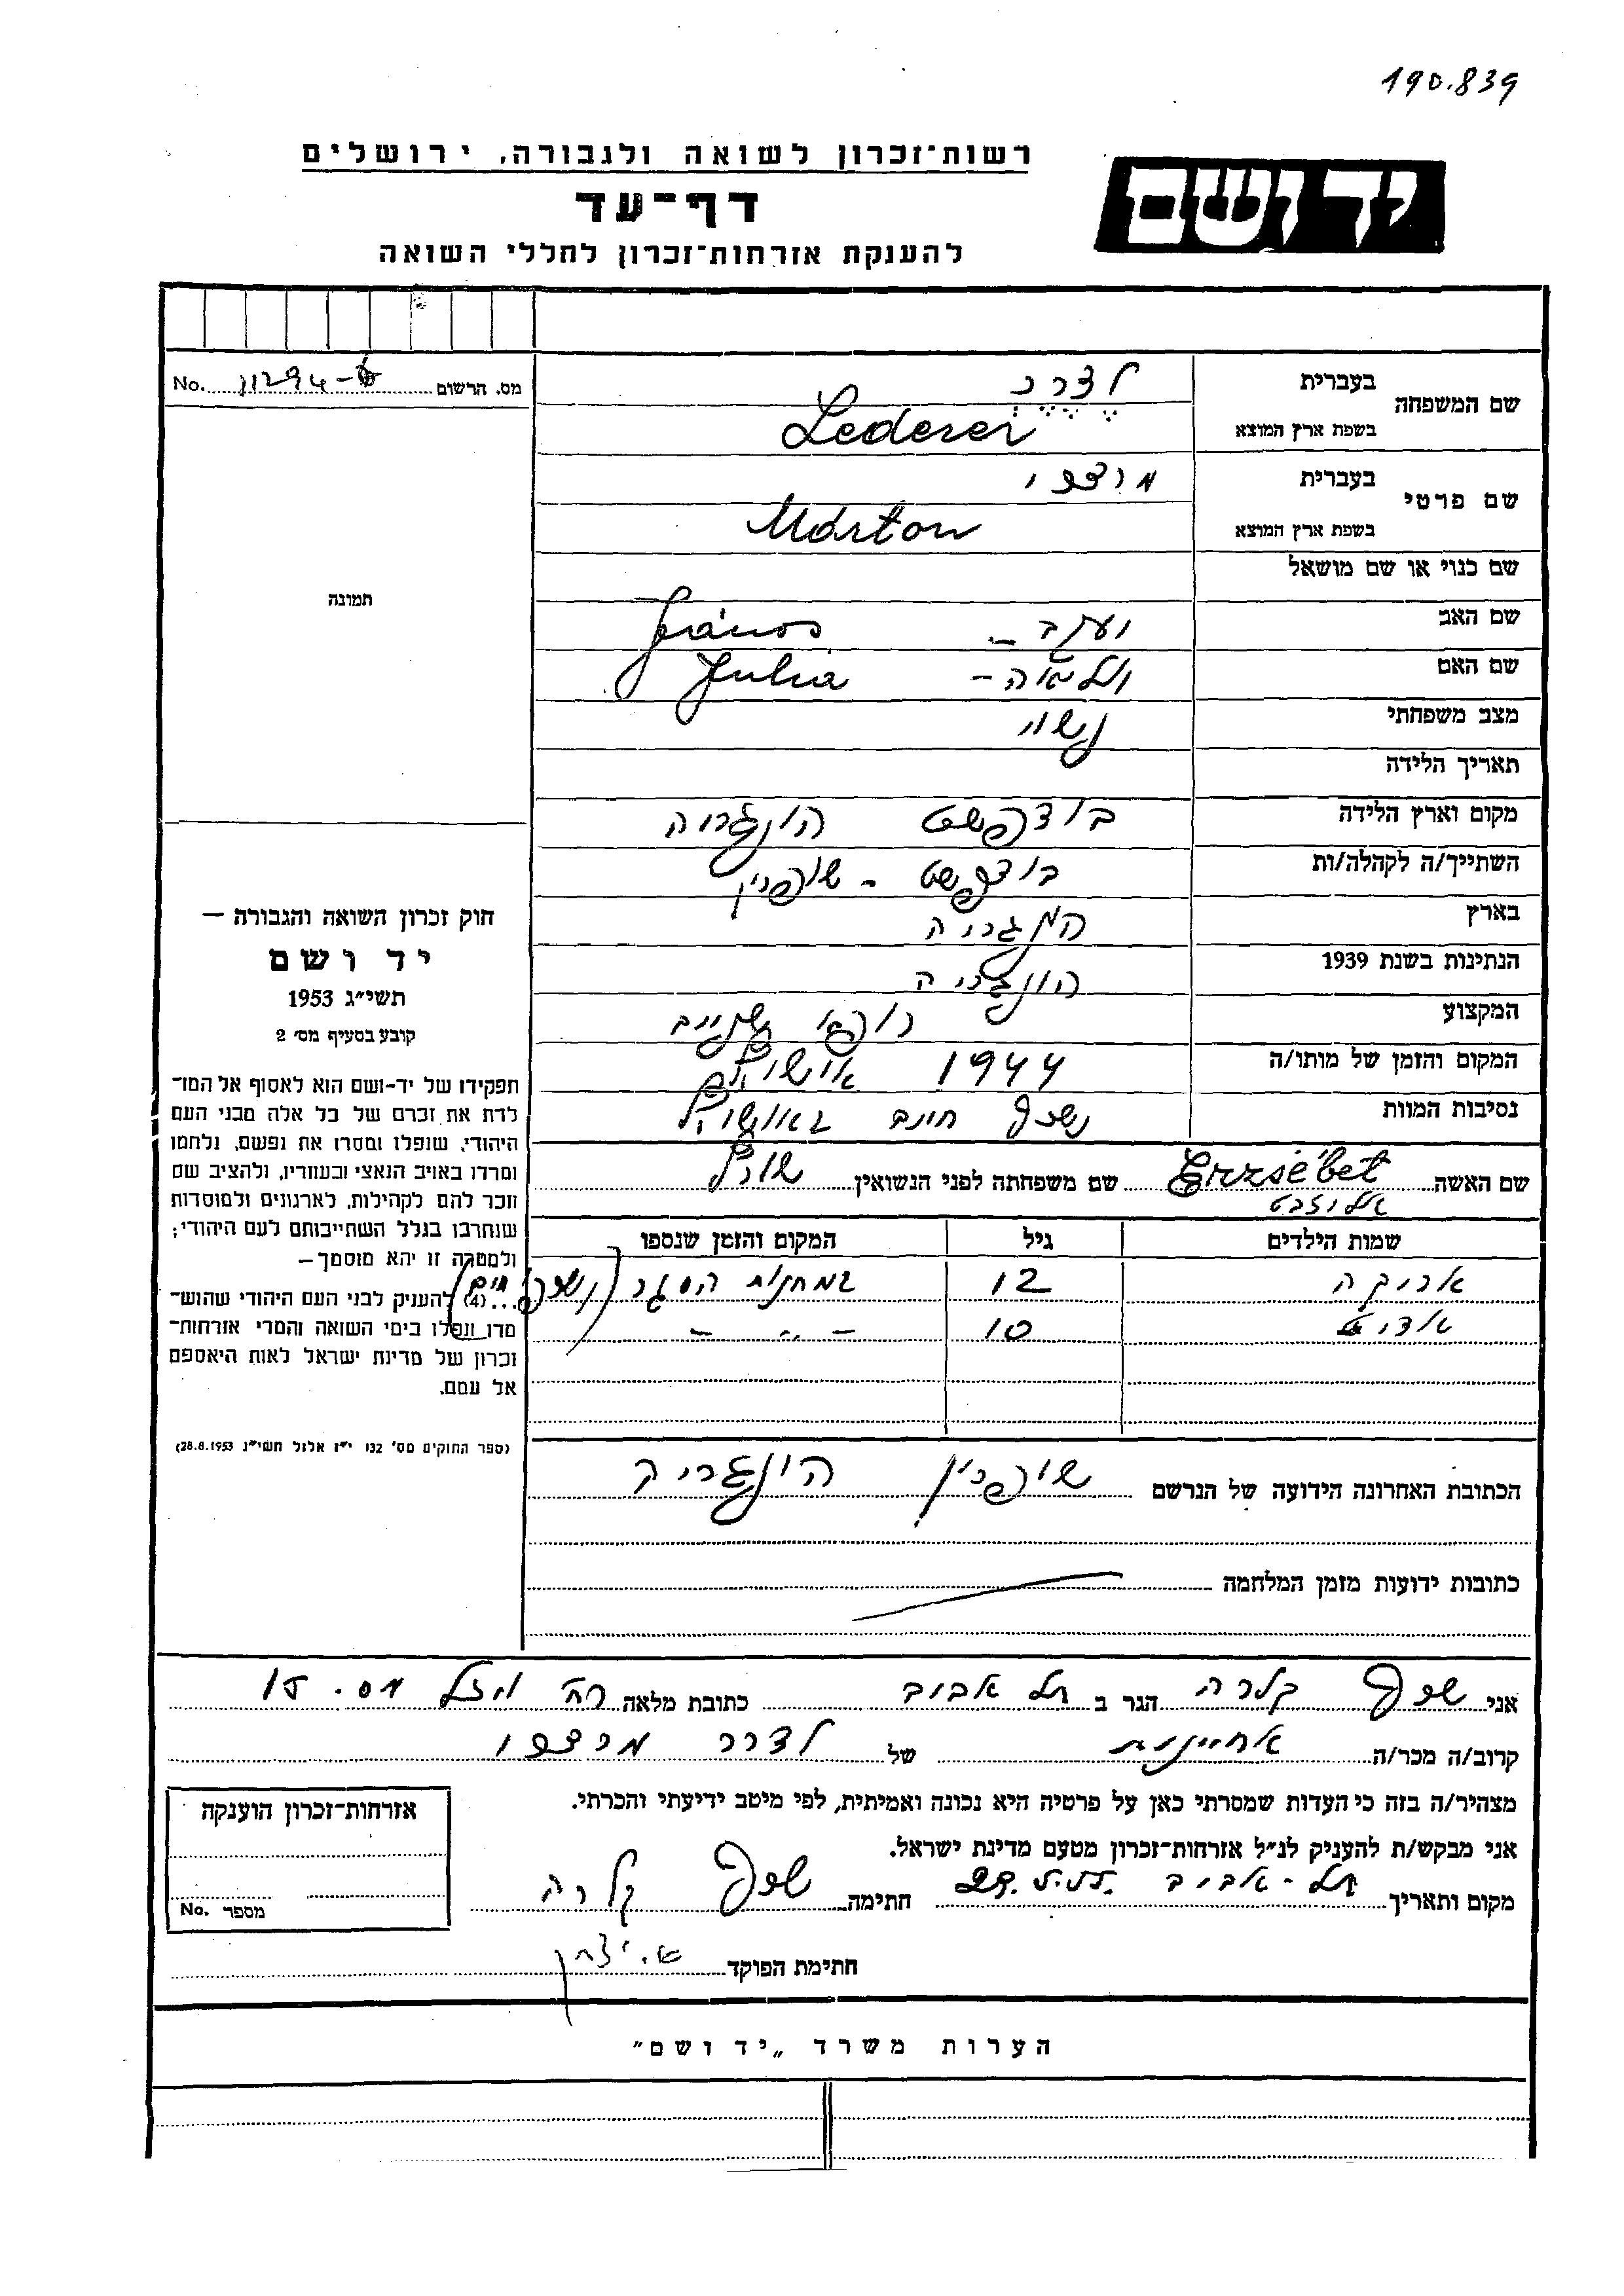 190.839
רשות־זכרון לשואה ולגבורה, ירושלים
יד ושם
דף־עד
להענקת אזרחות־זכרון לחללי השואה
מס. הרשום No.
שם המשפחה
בעברית לדרר
בשפת ארץ המוצא Lederer
שם פרטי
בעברית
בשפת ארץ המוצא Márton
שם כנוי או שם מושאל
שם האב יעקב - János
שם האם Julia
מצב משפחתי נשוי
תאריך הלידה
מקום וארץ הלידה בודפשט הונגריה
השתייך/ה לקהלה/ות בודפשט - שופרון
בארץ הונגריה
הנתינות בשנת 1939 הונגריה
המקצוע רופא שניים
המקום והזמן של מותו/ה 1944 אושויץ
נסיבות המוות נשרף חיים באושויץ
שם האשה Erzsébet אליזבט שם משפחתה לפני הנשואין
שמות הילדים גיל המקום והזמן שנספו
אריקה 12 במחנות הסגר (נשרפו חיים)
אדיט 10 - ״ -
הכתובת האחרונה הידועה של הנרשם שופרון הונגריה
כתובות ידועות מזמן המלחמה
תמונה
חוק זכרון השואה והגבורה —
יד ושם
תשי״ג 1953
קובע בסעיף מס׳ 2
תפקידו של יד-ושם הוא לאסוף אל המו־
לדת את זכרם של כל אלה מבני העם
היהודי, שנפלו ומסרו את נפשם, נלחמו
ומרדו באויב הנאצי ובעוזריו, ולהציב שם
וזכר להם לקהילות, לארגונים ולמוסדות
שנחרבו בגלל השתייכותם לעם היהודי;
ולמטרה זו יהא מוסמך—
...(4) להענין לבני העם היהודי שהוש־
מדו ונפלו בימי השואה והמרי אזרחות־
זכרון של מדינת ישראל לאות היאספם
אל עמם.
(ספר החוקים מס׳ 132 י״ז אלול תשי״ג 28.8.1953)
אני שרף קלרה הגר ב תל אביב כתובת מלאה רח׳ מס. 15
קרוב/ה מכר/ה אחיינית של לדרר
מצהיר/ה בזה כי העדות שמסרתי כאן על פרטיה היא נכונה ואמיתית, לפי מיטב ידיעתי והכרתי.
אני מבקש/ת להעניק לנ״ל אזרחות־זכרון מטעם מדינת ישראל.
מקום ותאריך תל-אביב חתימה שרף קלרה
אזרחות־זכרון הוענקה
מספר No.
חתימת הפוקד
הערות משרד „יד ושם״